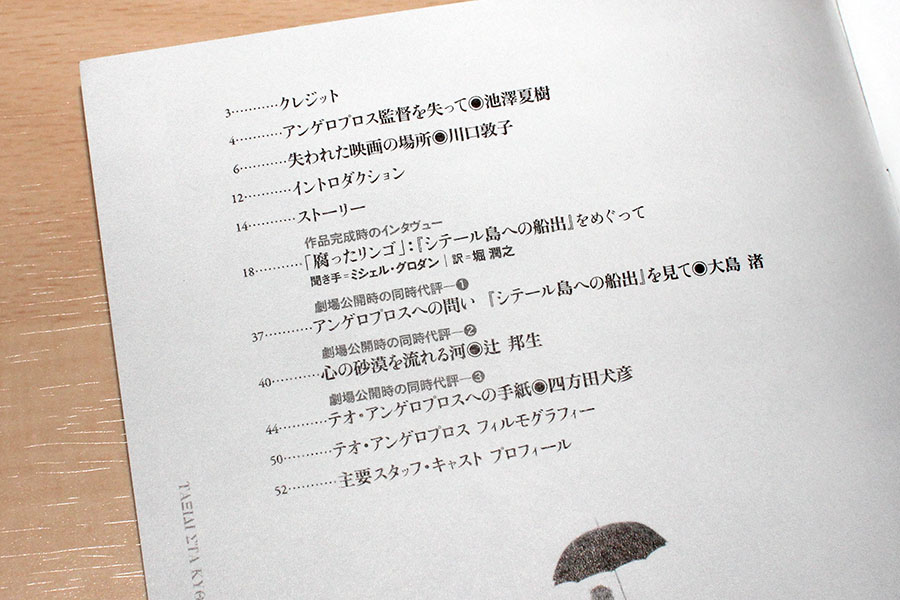 3…………クレジット
4…………アンゲロプロス監督を失って◉池澤夏樹
6…………失われた映画の場所◉川口敦子
12…………イントロダクション
14…………ストーリー
作品完成時のインタヴュー
18…………「腐ったリンゴ」:『シテール島への船出』をめぐって
聞き手=ミシェル・グロダン|訳=堀 潤之
劇場公開時の同時代評―❶
37…………アンゲロプロスへの問い 『シテール島への船出』を見て◉大島 渚
劇場公開時の同時代評―❷
40…………心の砂漠を流れる河◉辻 邦生
劇場公開時の同時代評―❸
44…………テオ・アンゲロプロスへの手紙◉四方田犬彦
50…………テオ・アンゲロプロス フィルモグラフィー
52…………主要スタッフ・キャスト プロフィール
ΤΑΞΙΔΙ ΣΤΑ ΚΥΘ